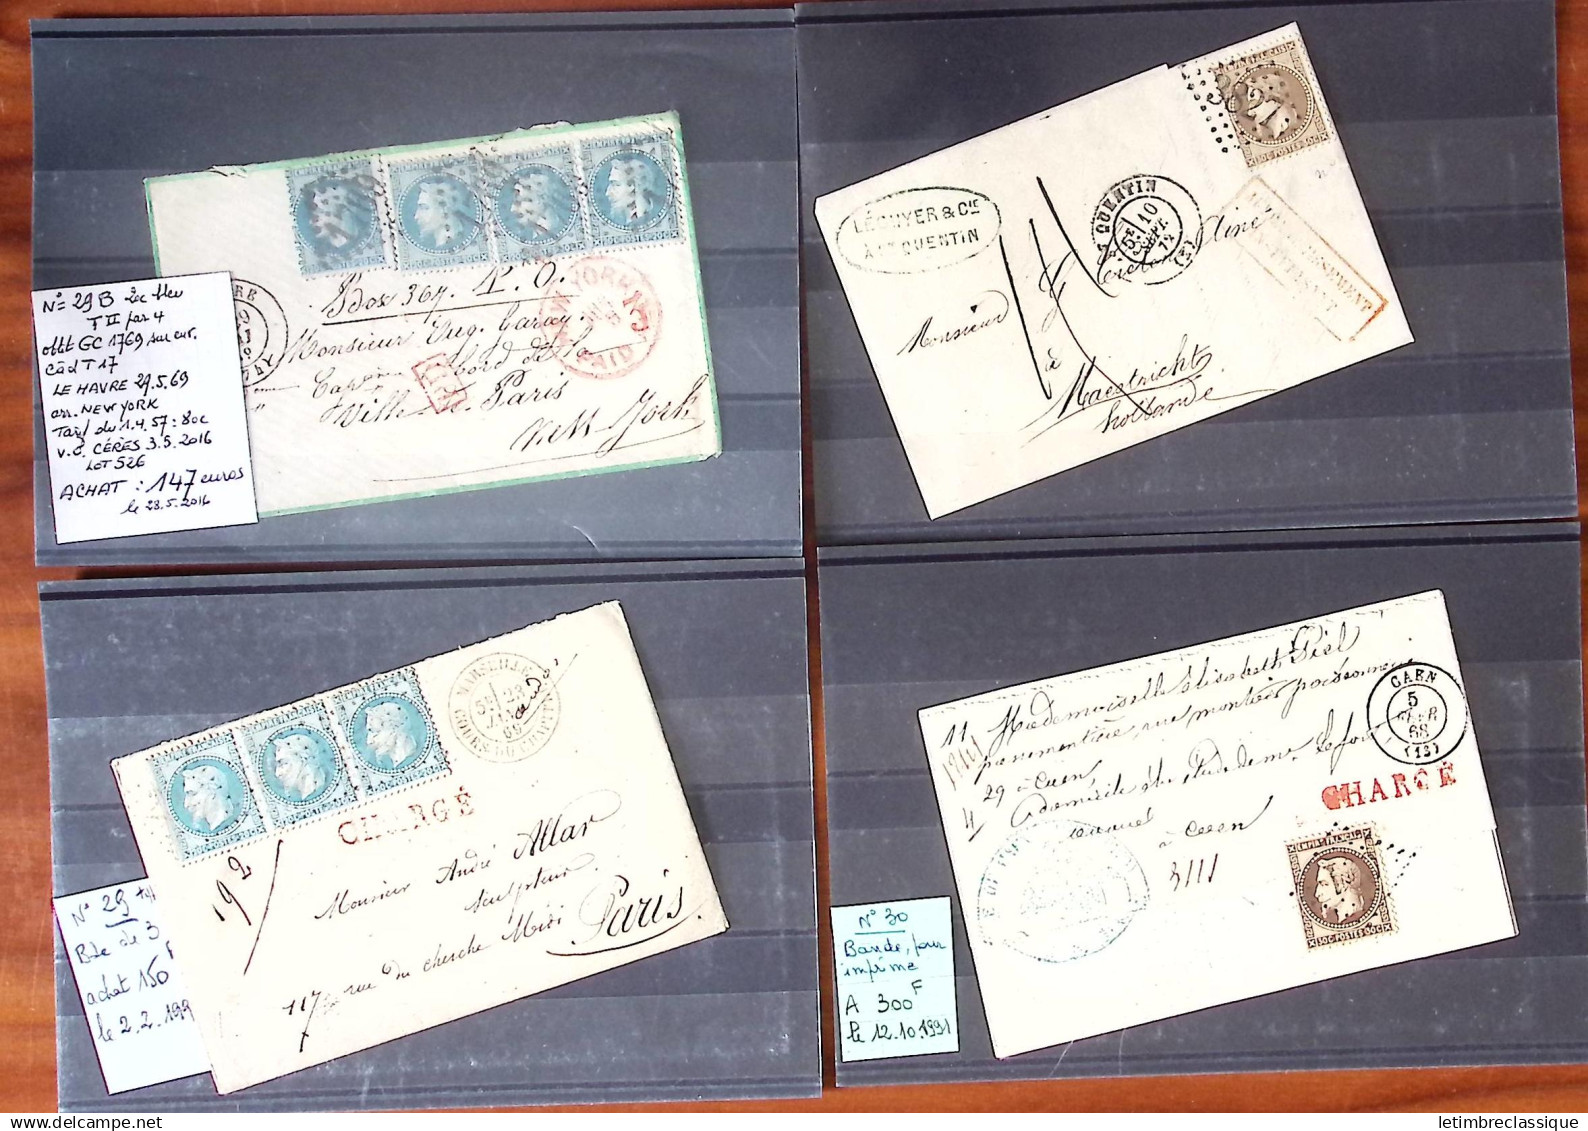 N° 29 B 20c bleu
T II par 4
oblit GC 1769 sur env.
càd T 17
LE HAVRE 29.5.69
arr. NEW YORK
Tarif du 1.4.57 : 80c
V.O. CÉRÈS 3.5.2016
LOT 526
ACHAT : 147 euros
le 28.5.2016
Box 367. P. O.
Monsieur Eug. Garay
Capne bord de la
Ville de Paris
New York
NEW YORK
3
PAID
LÉCUYER & CIE
A ST QUENTIN
ST QUENTIN
5E 10
SEPT.
72
(2)
AFFRANCHISSEMENT
INSUFFISANT
Monsieur
à
Maestricht
hollande
EMPIRE FRANÇAIS
30c POSTES 30c
MARSEILLE
5E 23
69
COURS DU CHAPITRE
CHARGÉ
192
Monsieur André Allar
Sculpteur
117 rue du cherche Midi
Paris
N° 29
Bde de 3
achat 150 F
le 2.2.199
11 Mademoiselle Elisabeth Piel
rue montoir poissonnerie
29 à Caen,
4
à Caen
3111
CAEN
5
68
(13)
CHARGÉ
EMPIRE FRANÇAIS
30c POSTES 30c
N° 30
Bande, pour
imprimé
A 300 F
le 12.10.1991
delcampe.net
letimbreclassique